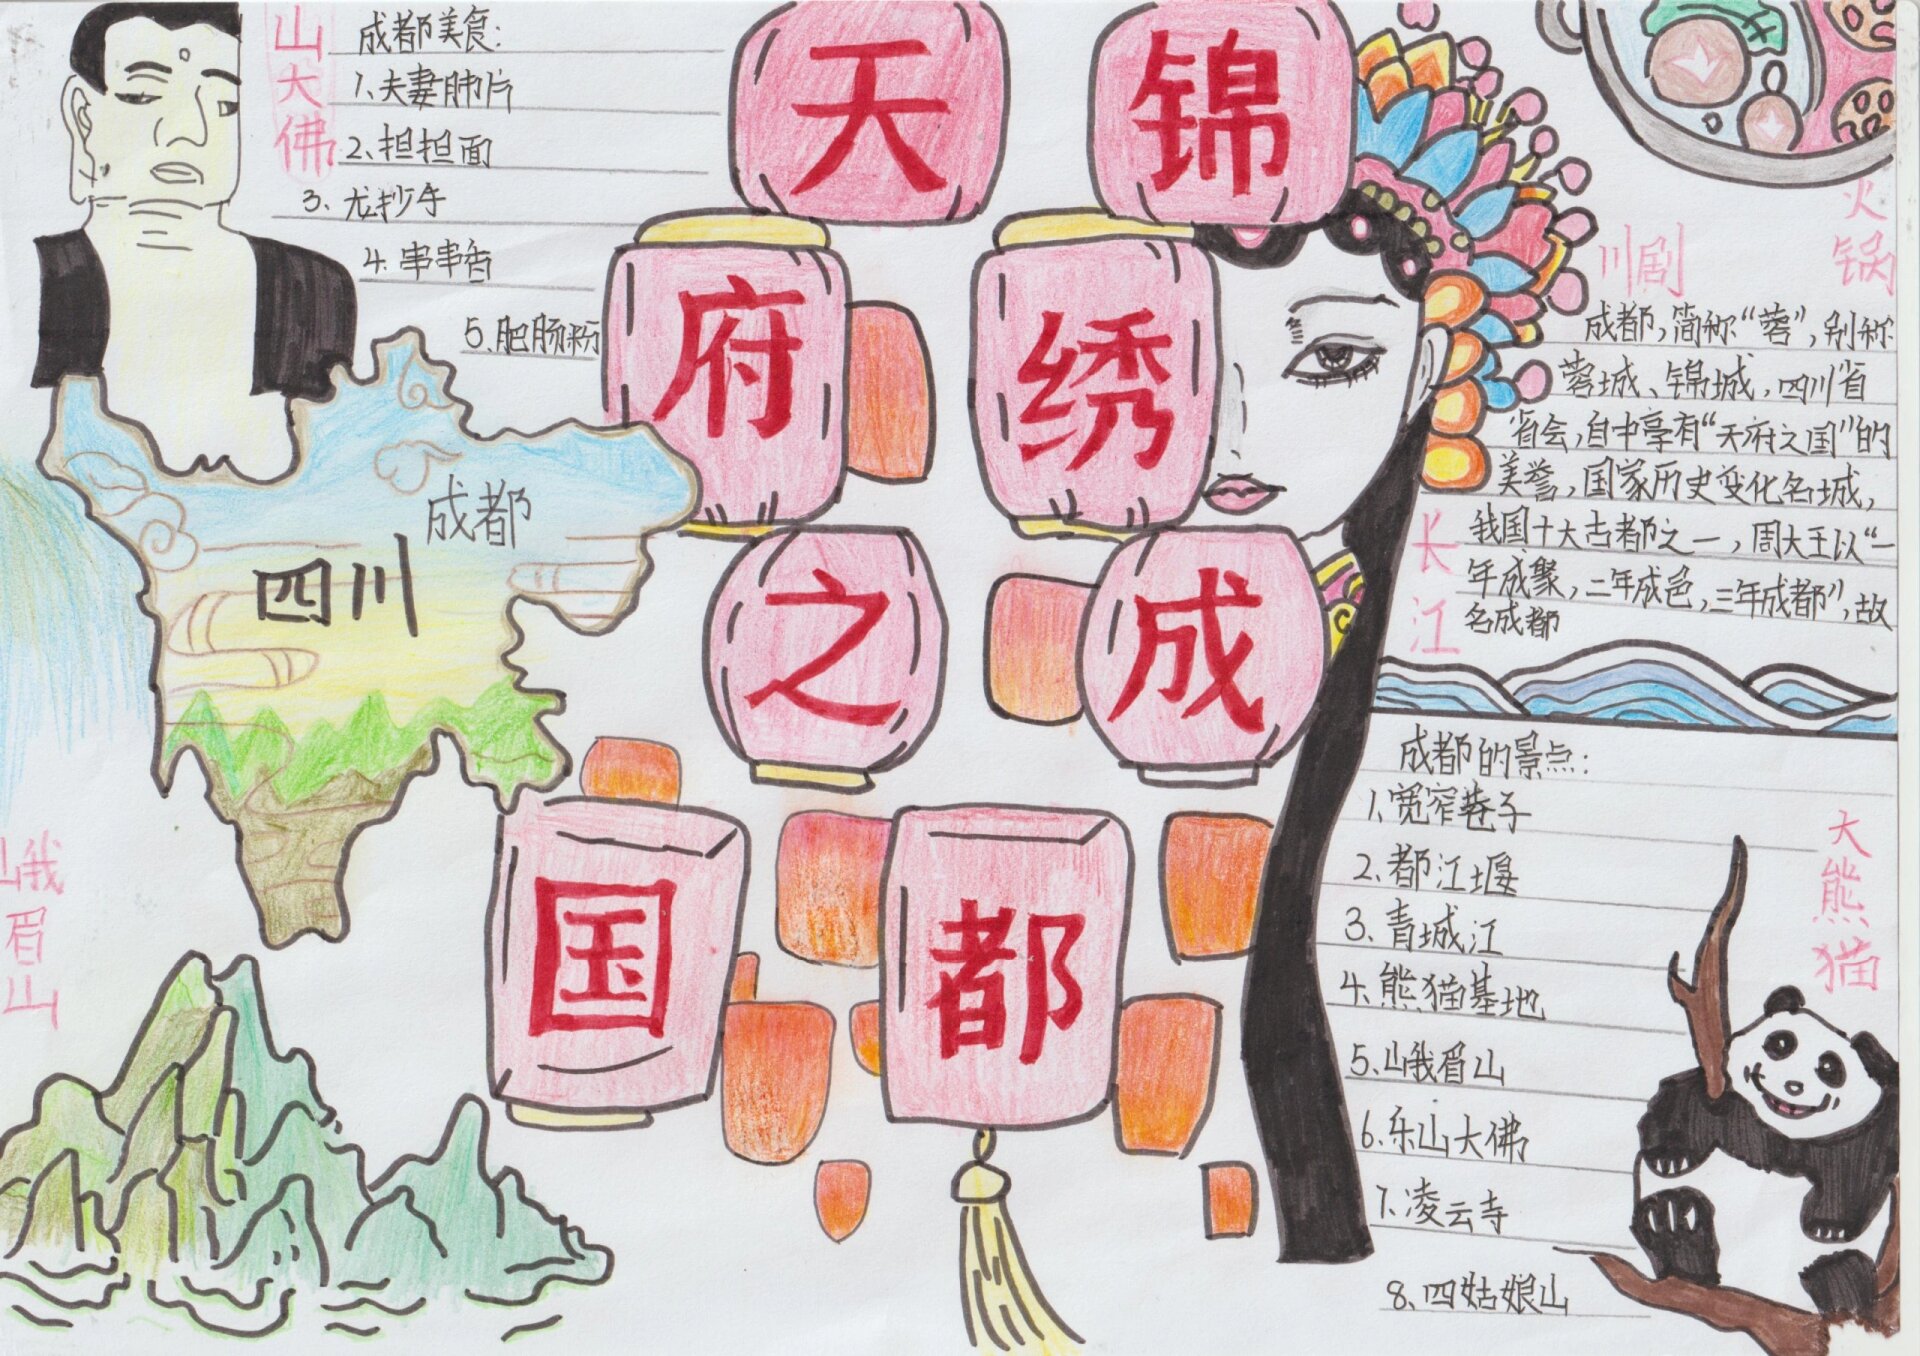 山大佛
成都美食:
1、夫妻肺片
2、担担面
3、龙抄手
4、串串香
5、肥肠粉
成都
四川
天府之国
锦绣成都
川剧
火锅
成都，简称“蓉”，别称
蓉城、锦城，四川省
省会，自中享有“天府之国”的
美誉，国家历史变化名城，
我国十大古都之一，周大王以“一
年成聚，二年成色，三年成都”，故
名成都
长江
成都的景点:
1、宽窄巷子
2、都江堰
3、青城江
4、熊猫基地
5、峨眉山
6、乐山大佛
7、凌云寺
8、四姑娘山
大熊猫
峨眉山